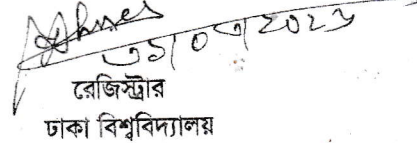 ৩১/০৭/2023
রেজিস্ট্রার
ঢাকা বিশ্ববিদ্যালয়